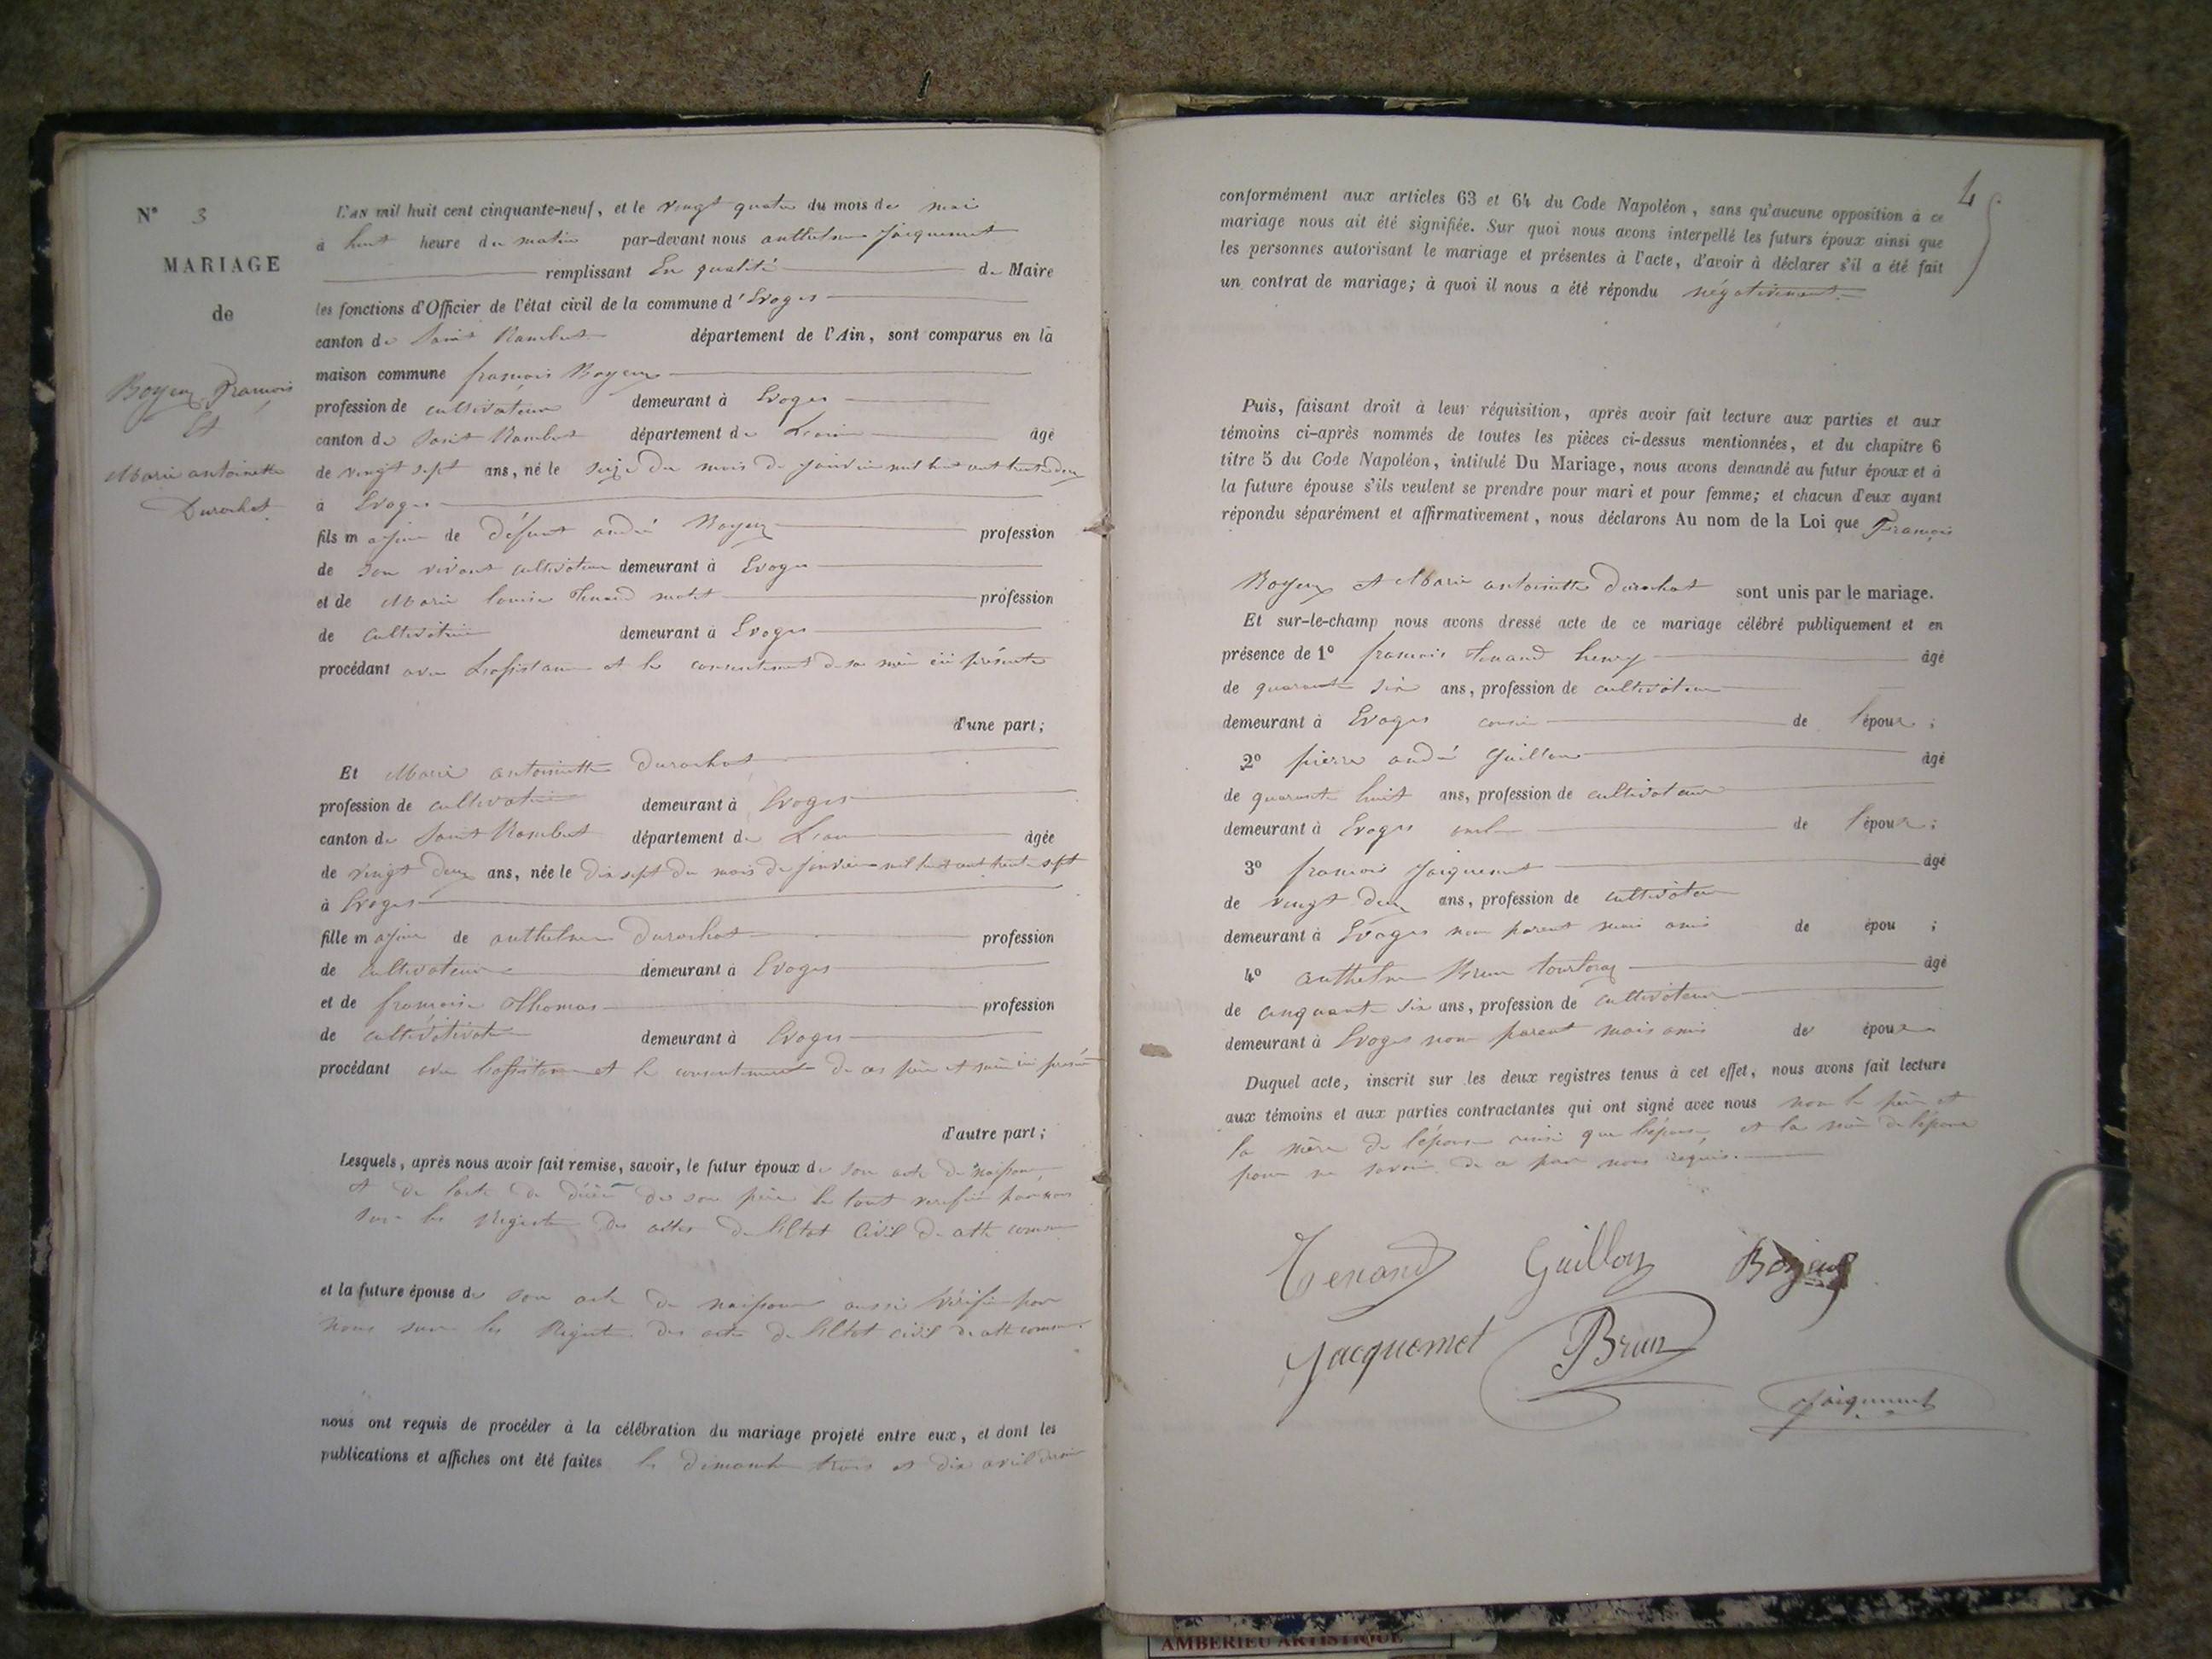 N° 3
MARIAGE
de
Boyeux François
Et
Marie antoinette
Durochat
L'AN mil huit cent cinquante-neuf, et le vingt quatre du mois de mai
à huit heure du matin par-devant nous anthelme Jacquemet
remplissant En qualité de Maire
les fonctions d'Officier de l'état civil de la commune d'Evoges
canton de Saint Rambert département de l'Ain, sont comparus en la
maison commune françois Boyeux
profession de cultivateur demeurant à Evoges
canton de Saint Rambert département de Leain âgé
de vingt sept ans, né le seize du mois de janvier mil huit cent trente deux
à Evoges
fils majeur de défunt andré Boyeux profession
de son vivant cultivateur demeurant à Evoges
et de Marie louise Tenand profession
de cultivatrice demeurant à Evoges
procédant avec Lassistance et le consentement de sa mère ici présente
d'une part;
Et Marie antoinette Durochat
profession de cultivatrice demeurant à Evoges
canton de Saint Rambert département de Leain âgée
de vingt deux ans, née le dix sept du mois de janvier mil huit cent trente sept
à Evoges
fille majeure de anthelme Durochat profession
de cultivateur demeurant à Evoges
et de françoise Thomas profession
de demeurant à Evoges
procédant avec lassistance et le consentement de ces père et mère ici présents
d'autre part;
Lesquels, après nous avoir fait remise, savoir, le futur époux de son acte de naissance
et de lacte de décès de son père le tout verifié par nous
sur les Registres des actes de lEtat Civil de cette commune
et la future épouse de son acte de naissance aussi vérifié par
nous sur les Registres des actes de lEtat civil de cette commune
nous ont requis de procéder à la célébration du mariage projeté entre eux, et dont les
publications et affiches ont été faites les dimanches trois et dix avril dernier
4
conformément aux articles 63 et 64 du Code Napoléon, sans qu'aucune opposition à ce
mariage nous ait été signifiée. Sur quoi nous avons interpellé les futurs époux ainsi que
les personnes autorisant le mariage et présentes à l'acte, d'avoir à déclarer s'il a été fait
un contrat de mariage; à quoi il nous a été répondu négativement.
Puis, faisant droit à leur réquisition, après avoir fait lecture aux parties et aux
témoins ci-après nommés de toutes les pièces ci-dessus mentionnées, et du chapitre 6
titre 5 du Code Napoléon, intitulé Du Mariage, nous avons demandé au futur époux et à
la future épouse s'ils veulent se prendre pour mari et pour femme; et chacun d'eux ayant
répondu séparément et affirmativement, nous déclarons Au nom de la Loi que François
Boyeux et Marie antoinette Durochat sont unis par le mariage.
Et sur-le-champ nous avons dressé acte de ce mariage célébré publiquement et en
présence de 1° françois Tenand henry âgé
de quarante six ans, profession de cultivateur
demeurant à Evoges cousin de l'époux;
2° pierre andré Guillon âgé
de quarante huit ans, profession de cultivateur
demeurant à Evoges oncle de l'époux;
3° françois Jacquemet âgé
de vingt deux ans, profession de cultivateur
demeurant à Evoges non parent mais amis de épou ;
4° anthelme Brun tourtoray âgé
de cinquante six ans, profession de cultivateur
demeurant à Evoges non parent mais amis des époux
Duquel acte, inscrit sur les deux registres tenus à cet effet, nous avons fait lecture
aux témoins et aux parties contractantes qui ont signé avec nous non le père et
la mère de lépouse ainsi que lépouse, et la mère de lépoux
pour ne savoir de ce par nous requis.
Tenand Guillon Boyeux
Jacquemet Brun
Jacquemet
AMBERIEU ARTISTIQUE